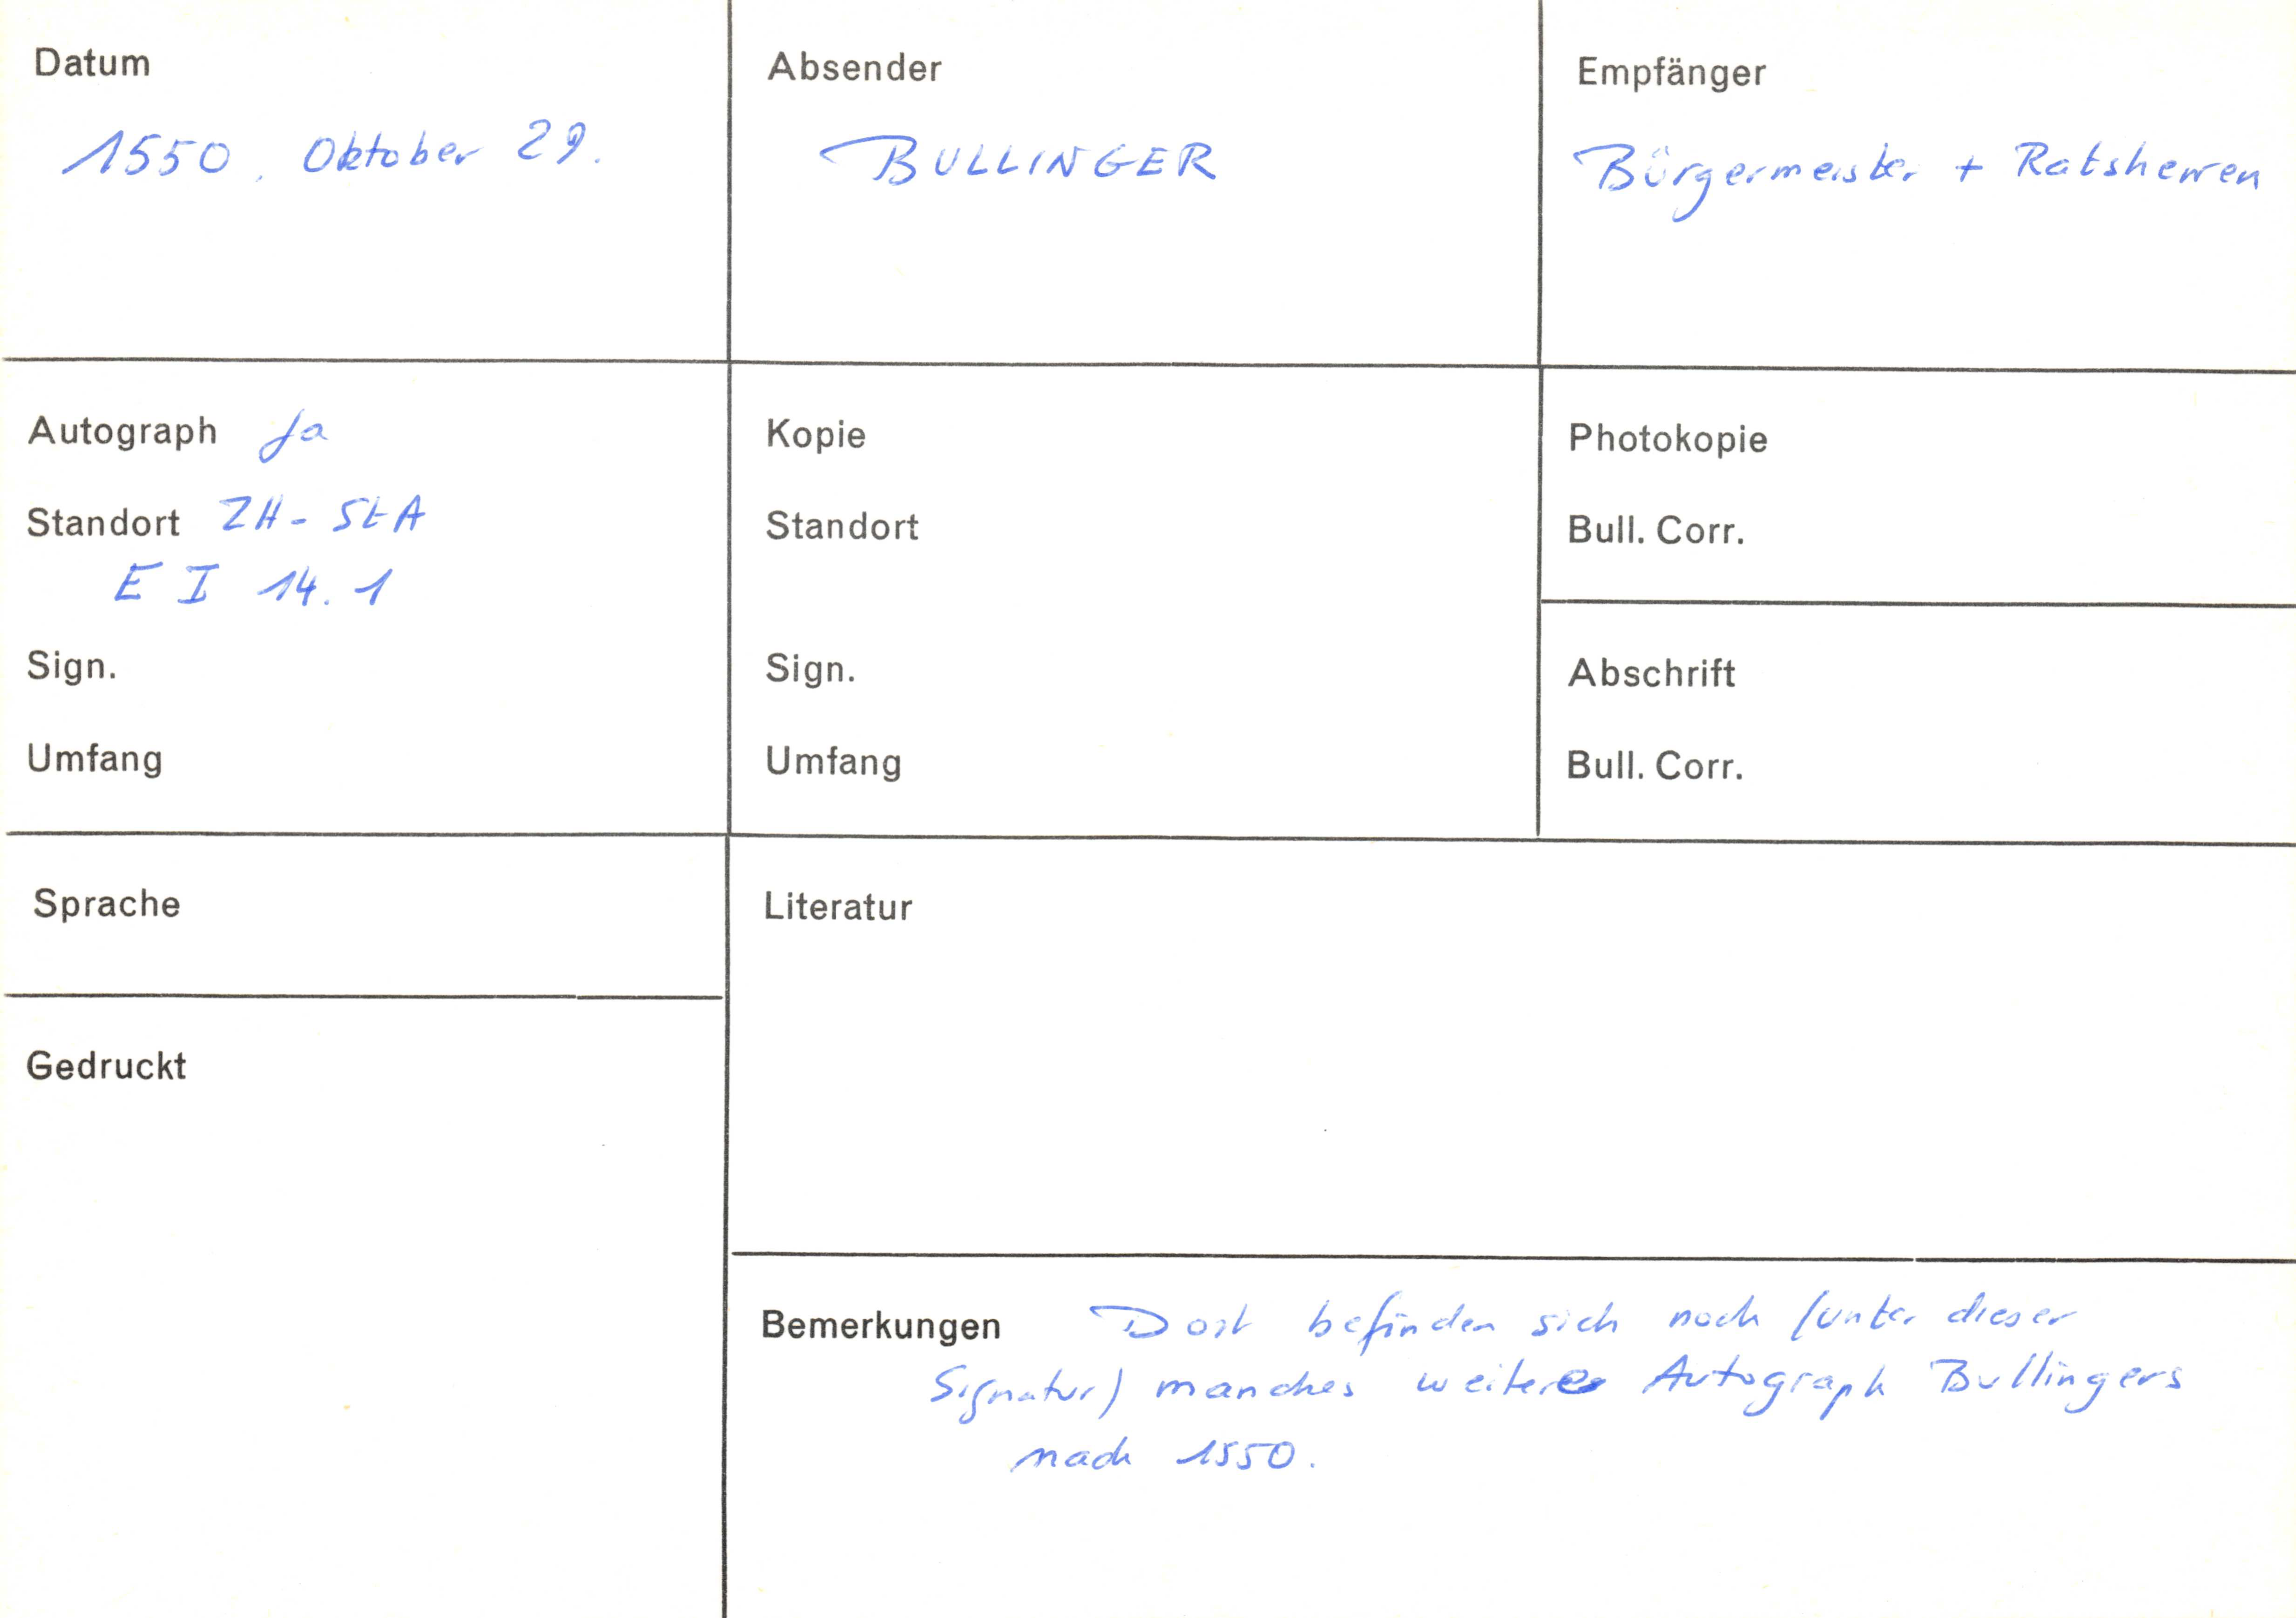 Datum
1550, Oktober 29.
Absender
BULLINGER
Empfänger
Bürgermeister + Ratsherren
Autograph Ja
Standort ZH-StA
E I 14.1
Sign.
Umfang
Kopie
Standort
Sign.
Umfang
Photokopie
Bull. Corr.
Abschrift
Bull. Corr.
Sprache
Gedruckt
Literatur
Bemerkungen Dort befinden sich noch (unter dieser
Signatur) manches weitere Autograph Bullingers
nach 1550.